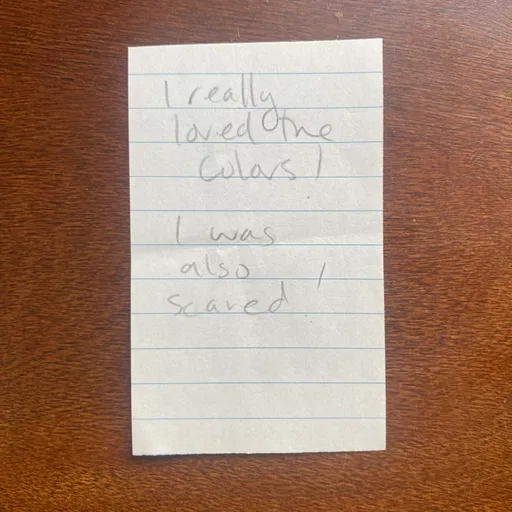 I really
loved the
colors!
I was
also
scared!